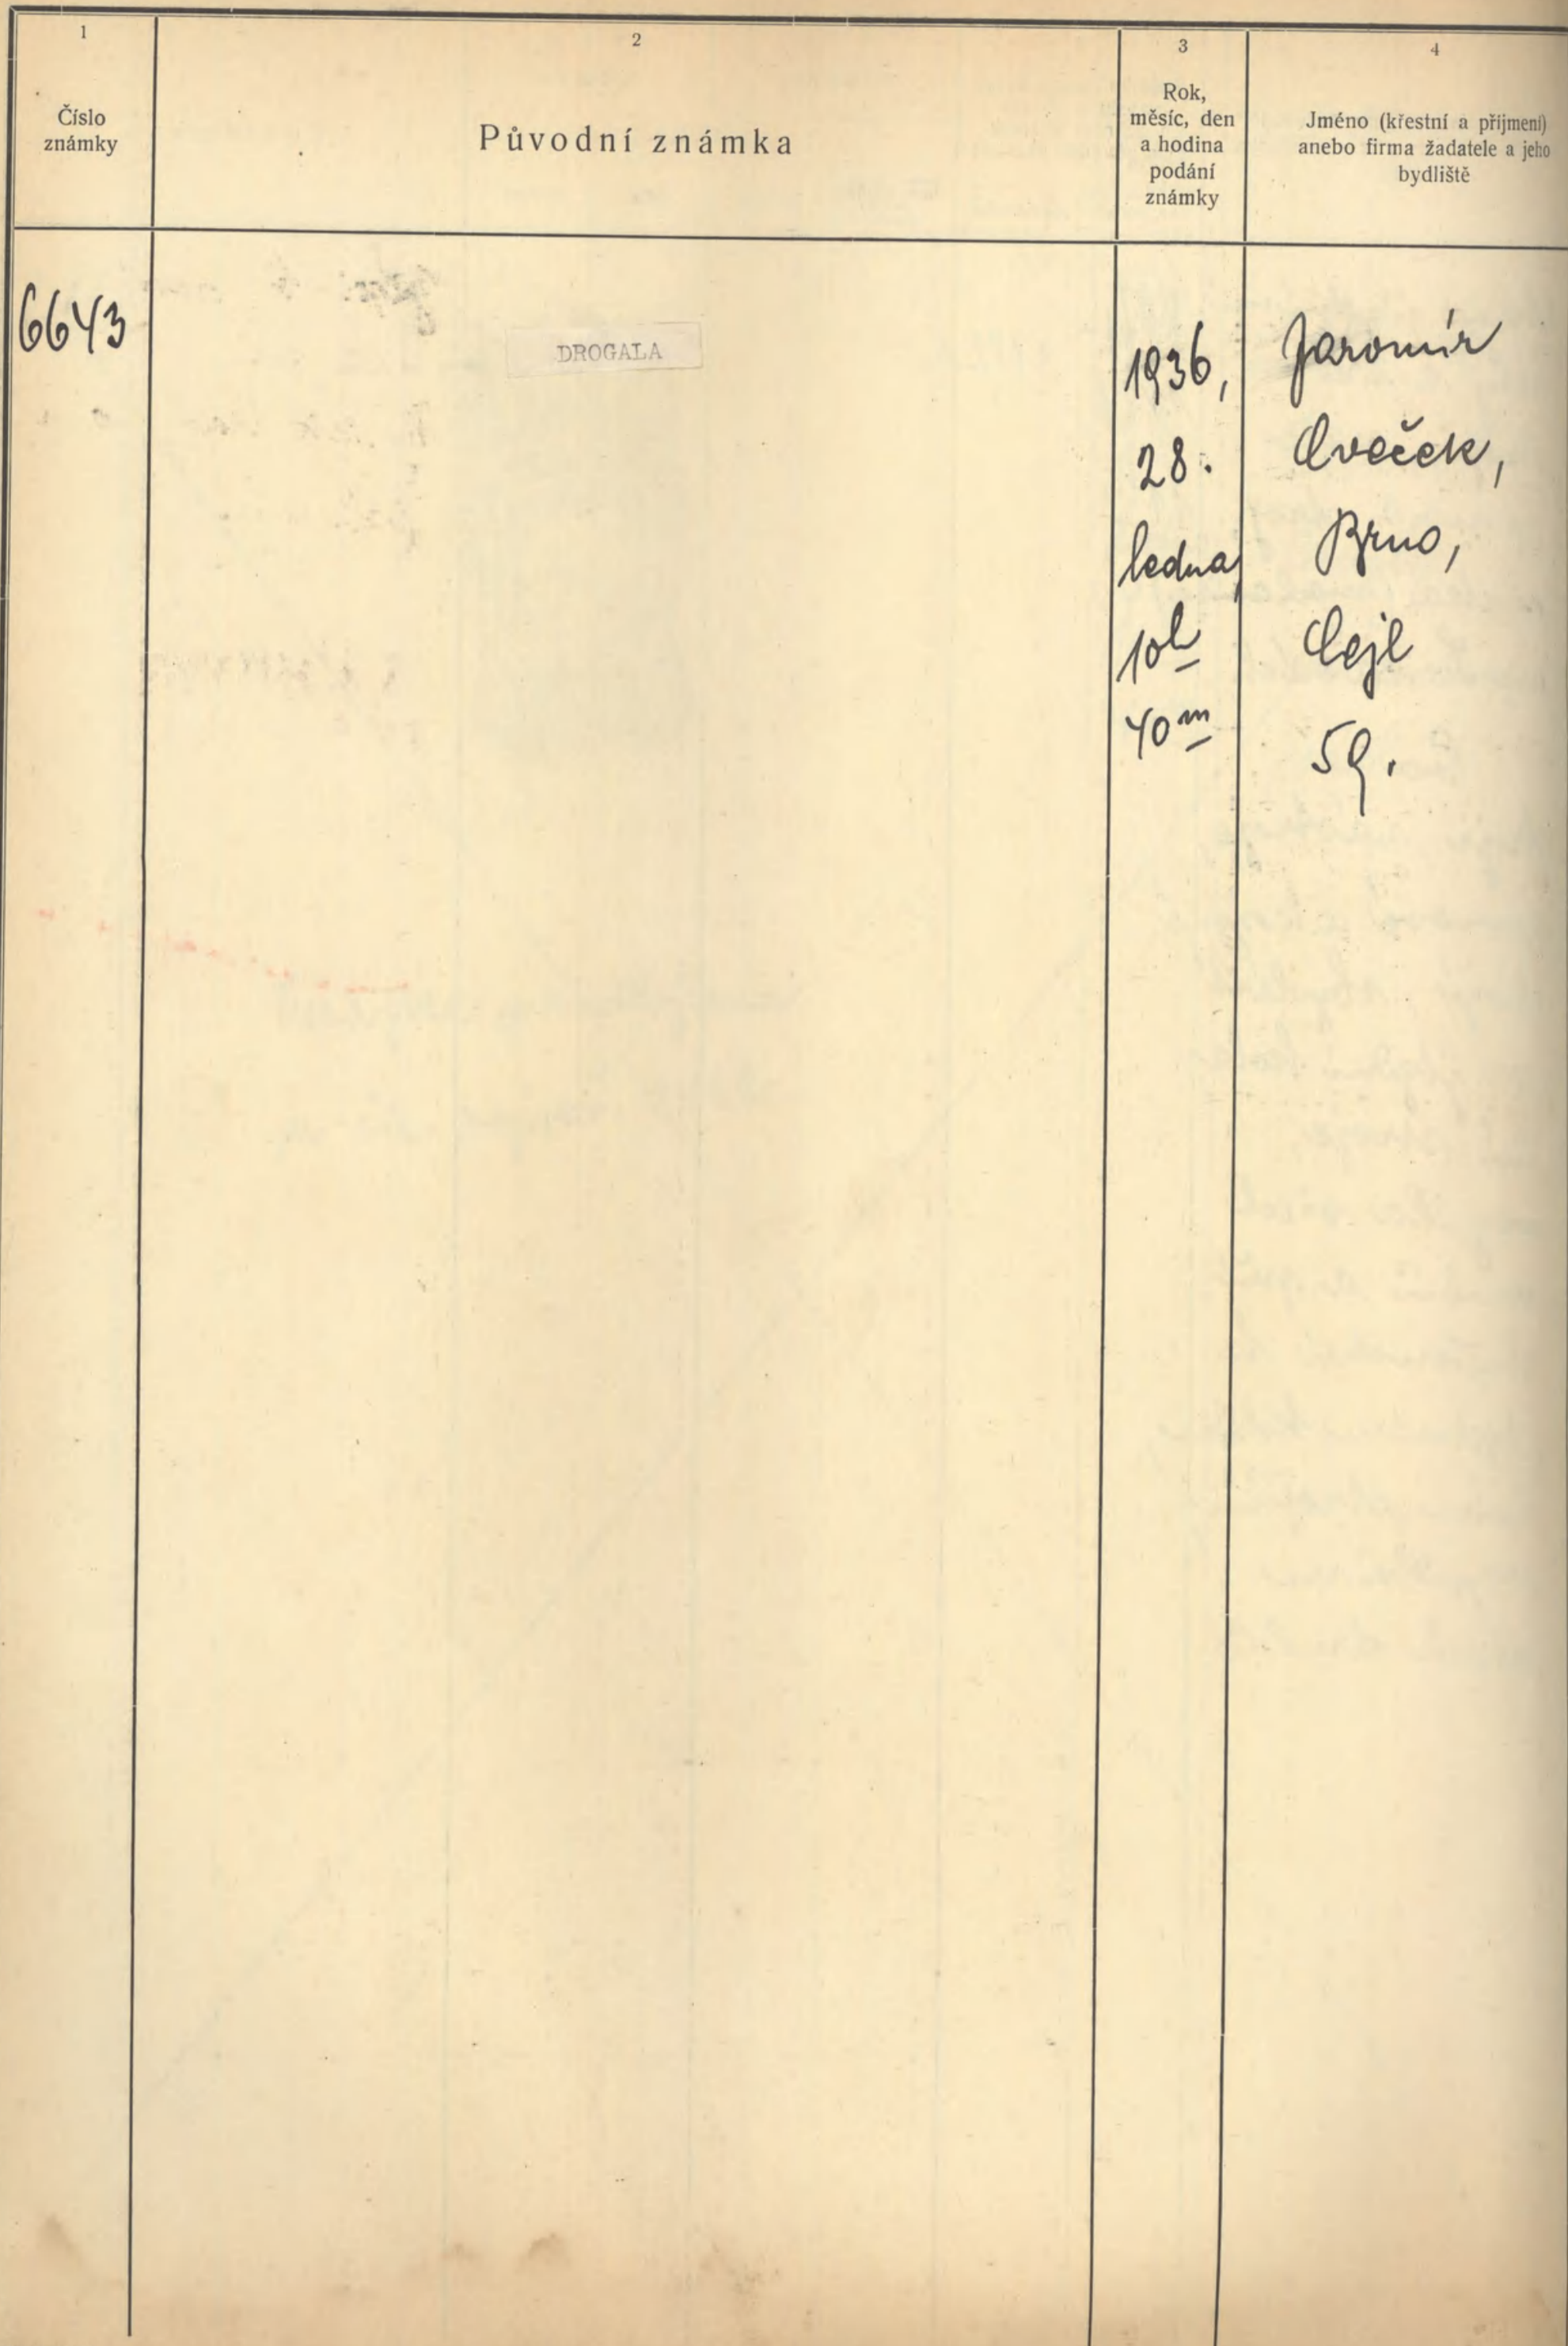 1
Číslo
známky
2
Původní známka
3
Rok,
měsíc, den
a hodina
podání
známky
4
Jméno (křestní a příjmení)
anebo firma žadatele a jeho
bydliště
6643
DROGALA
1936,
28.
ledna,
10h
40m
Jaromír
Cveček,
Brno,
Cejl
59.